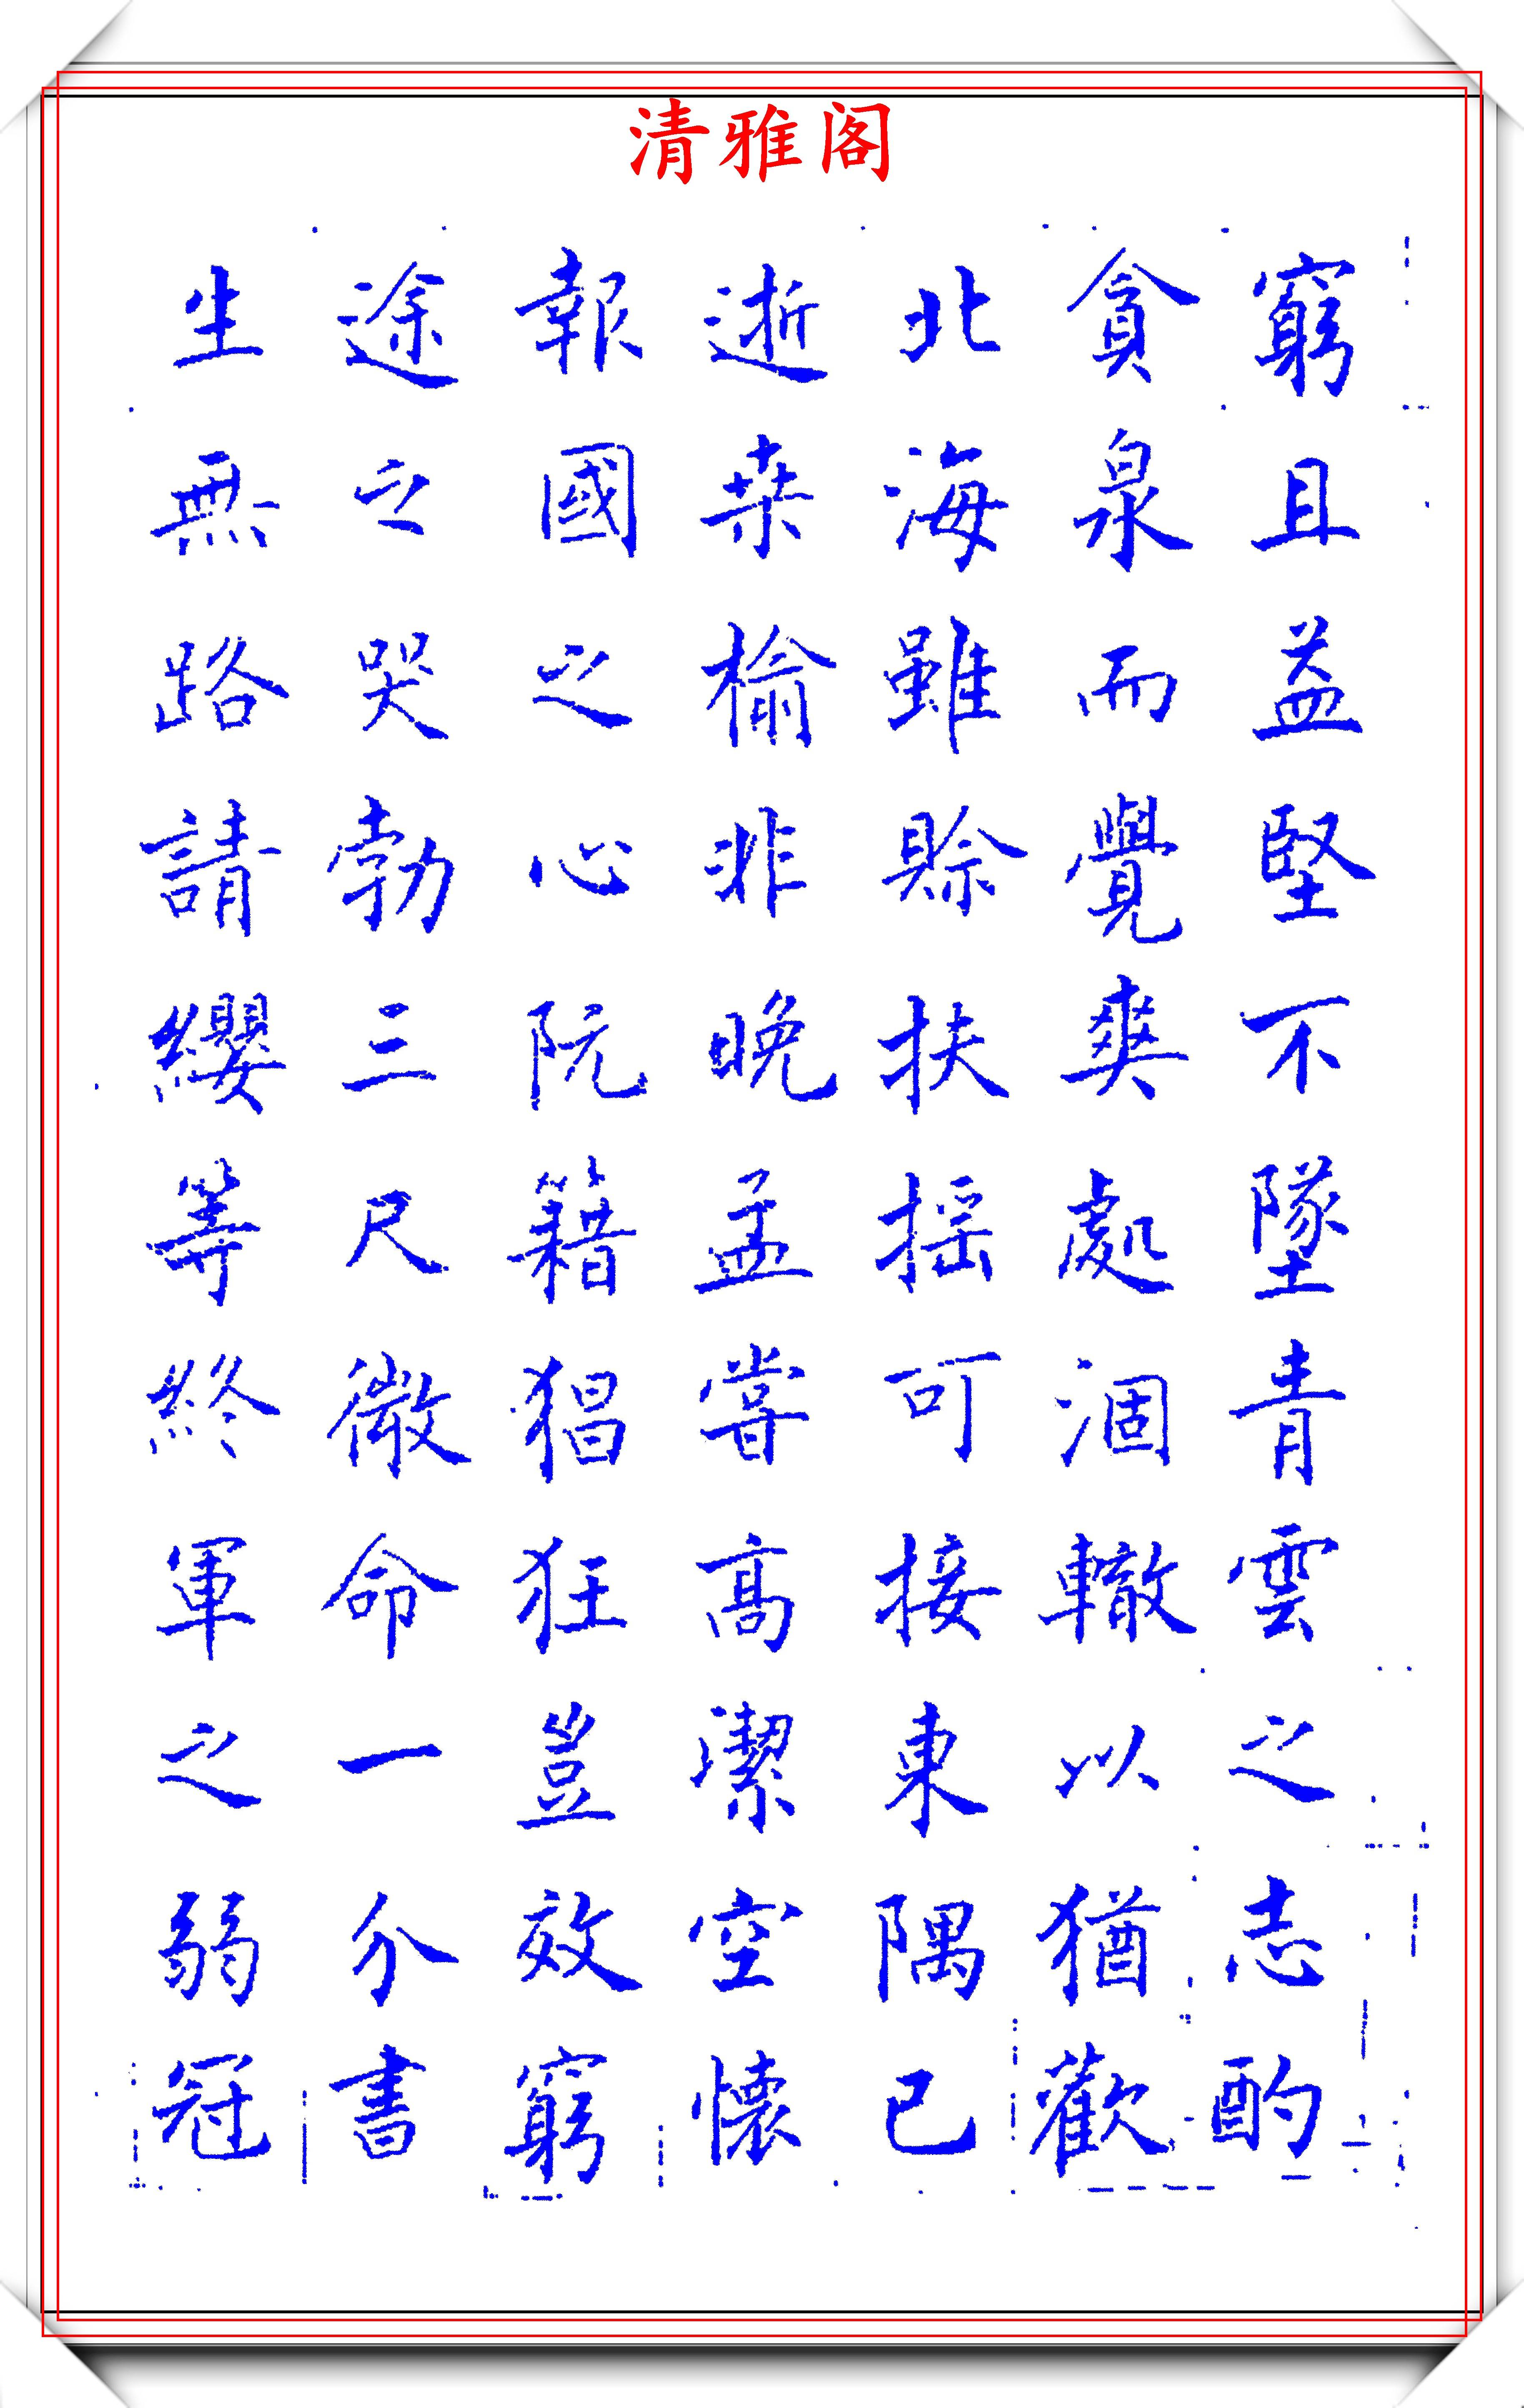 清雅阁
窮且益堅不墜青雲之志酌
貪泉而覺爽處涸轍以猶歡
北海雖賒扶搖可接東隅已
逝桒榆非晚孟嘗高潔空懷
報國之心阮籍猖狂豈效窮
途之哭勃三尺微命一介書
生無路請纓等終軍之弱冠